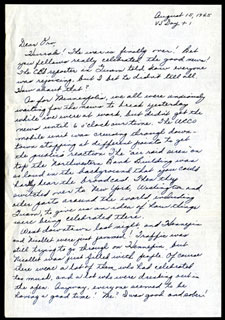 August 15, 1945
VJ Day + 1
Dear Orv,
Hurrah! The war is finally over! Bet
you fellows really celebrated the good news!
The CBS reporter in Guam told how everyone
was rejoicing, but I bet he didn't tell all
How about that?
As for Minneapolis, we all were anxiously
waiting for the news to break yesterday
while we were at work, but didn't get the
news until 6 o'clock our time. The WCCO
mobile unit was cruising through down-
town stopping at different points to get
the public's reaction. The air raid siren on
top the Northwestern Bank Building was
so loud in the background that you could
hardly hear the broadcast. Then they
switched over to New York, Washington and
other points around the world, including
Guam, to give us an idea of how things
were being celebrated there.
Went downtown last night, and Hennepin
and Nicollet were just jammed! Traffic was
still trying to go through on Hennepin but
Nicollet was just filled with people. Of course
there were a lot of them who had celebrated
too much, and a lot who were drinking out in
the open. Anyway, everyone seemed to be
having a good time. Me? I was good and sober!